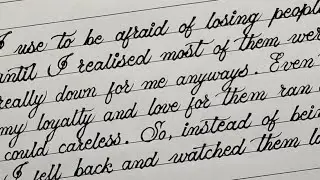 I use to be afraid of losing people
until I realised most of them wer
really down for me anyways. Even
my loyalty and love for them ran
could careless. So, instead of bein
I fell back and watched them